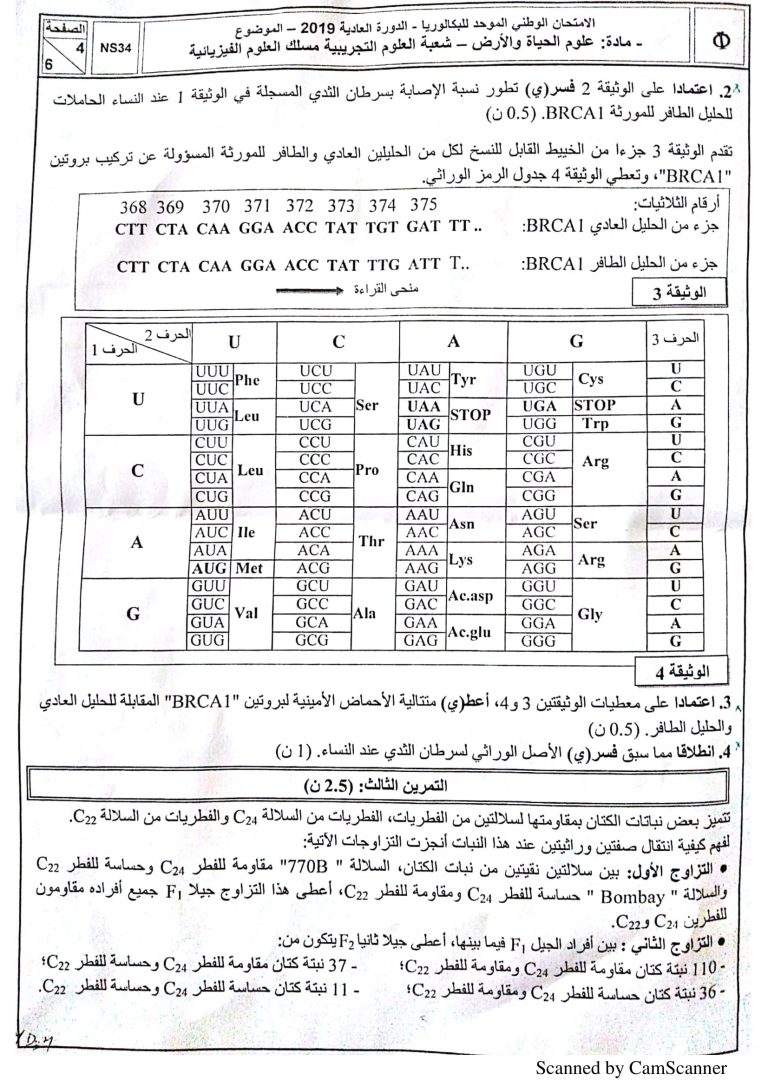 الصفحة
4
6
NS34
الامتحان الوطني الموحد للبكالوريا - الدورة العادية 2019 – الموضوع
- مادة: علوم الحياة والأرض – شعبة العلوم التجريبية مسلك العلوم الفيزيائية
Φ
2. اعتمادا على الوثيقة 2 فسر(ي) تطور نسبة الإصابة بسرطان الثدي المسجلة في الوثيقة 1 عند النساء الحاملات
للحليل الطافر للمورثة BRCA1. (0.5 ن)
تقدم الوثيقة 3 جزءا من الخييط القابل للنسخ لكل من الحليلين العادي والطافر للمورثة المسؤولة عن تركيب بروتين
"BRCA1"، وتعطي الوثيقة 4 جدول الرمز الوراثي.
أرقام الثلاثيات: 368 369 370 371 372 373 374 375
جزء من الحليل العادي BRCA1: CTT CTA CAA GGA ACC TAT TGT GAT TT..
جزء من الحليل الطافر BRCA1: CTT CTA CAA GGA ACC TAT TTG ATT T..
منحى القراءة
الوثيقة 3
الحرف 2 الحرف 1 U C A G الحرف 3
U UUU Phe UCU Ser UAU Tyr UGU Cys U
UUC UCC UAC UGC C
UUA Leu UCA UAA STOP UGA STOP A
UUG UCG UAG UGG Trp G
C CUU Leu CCU Pro CAU His CGU Arg U
CUC CCC CAC CGC C
CUA CCA CAA Gln CGA A
CUG CCG CAG CGG G
A AUU Ile ACU Thr AAU Asn AGU Ser U
AUC ACC AAC AGC C
AUA ACA AAA Lys AGA Arg A
AUG Met ACG AAG AGG G
G GUU Val GCU Ala GAU Ac.asp GGU Gly U
GUC GCC GAC GGC C
GUA GCA GAA Ac.glu GGA A
GUG GCG GAG GGG G
الوثيقة 4
3. اعتمادا على معطيات الوثيقتين 3 و4، أعط(ي) متتالية الأحماض الأمينية لبروتين "BRCA1" المقابلة للحليل العادي
والحليل الطافر. (0.5 ن)
4. انطلاقا مما سبق فسر(ي) الأصل الوراثي لسرطان الثدي عند النساء. (1 ن)
التمرين الثالث: (2.5 ن)
تتميز بعض نباتات الكتان بمقاومتها لسلالتين من الفطريات، الفطريات من السلالة C24 والفطريات من السلالة C22.
لفهم كيفية انتقال صفتين وراثيتين عند هذا النبات أنجزت التزاوجات الآتية:
• التزاوج الأول: بين سلالتين نقيتين من نبات الكتان، السلالة " 770B" مقاومة للفطر C24 وحساسة للفطر C22
والسلالة " Bombay " حساسة للفطر C24 ومقاومة للفطر C22، أعطى هذا التزاوج جيلا F1 جميع أفراده مقاومون
للفطرين C24 وC22.
• التزاوج الثاني : بين أفراد الجيل F1 فيما بينها، أعطى جيلا ثانيا F2 يتكون من:
- 110 نبتة كتان مقاومة للفطر C24 ومقاومة للفطر C22؛ - 37 نبتة كتان مقاومة للفطر C24 وحساسة للفطر C22؛
- 36 نبتة كتان حساسة للفطر C24 ومقاومة للفطر C22؛ - 11 نبتة كتان حساسة للفطر C24 وحساسة للفطر C22.
Scanned by CamScanner